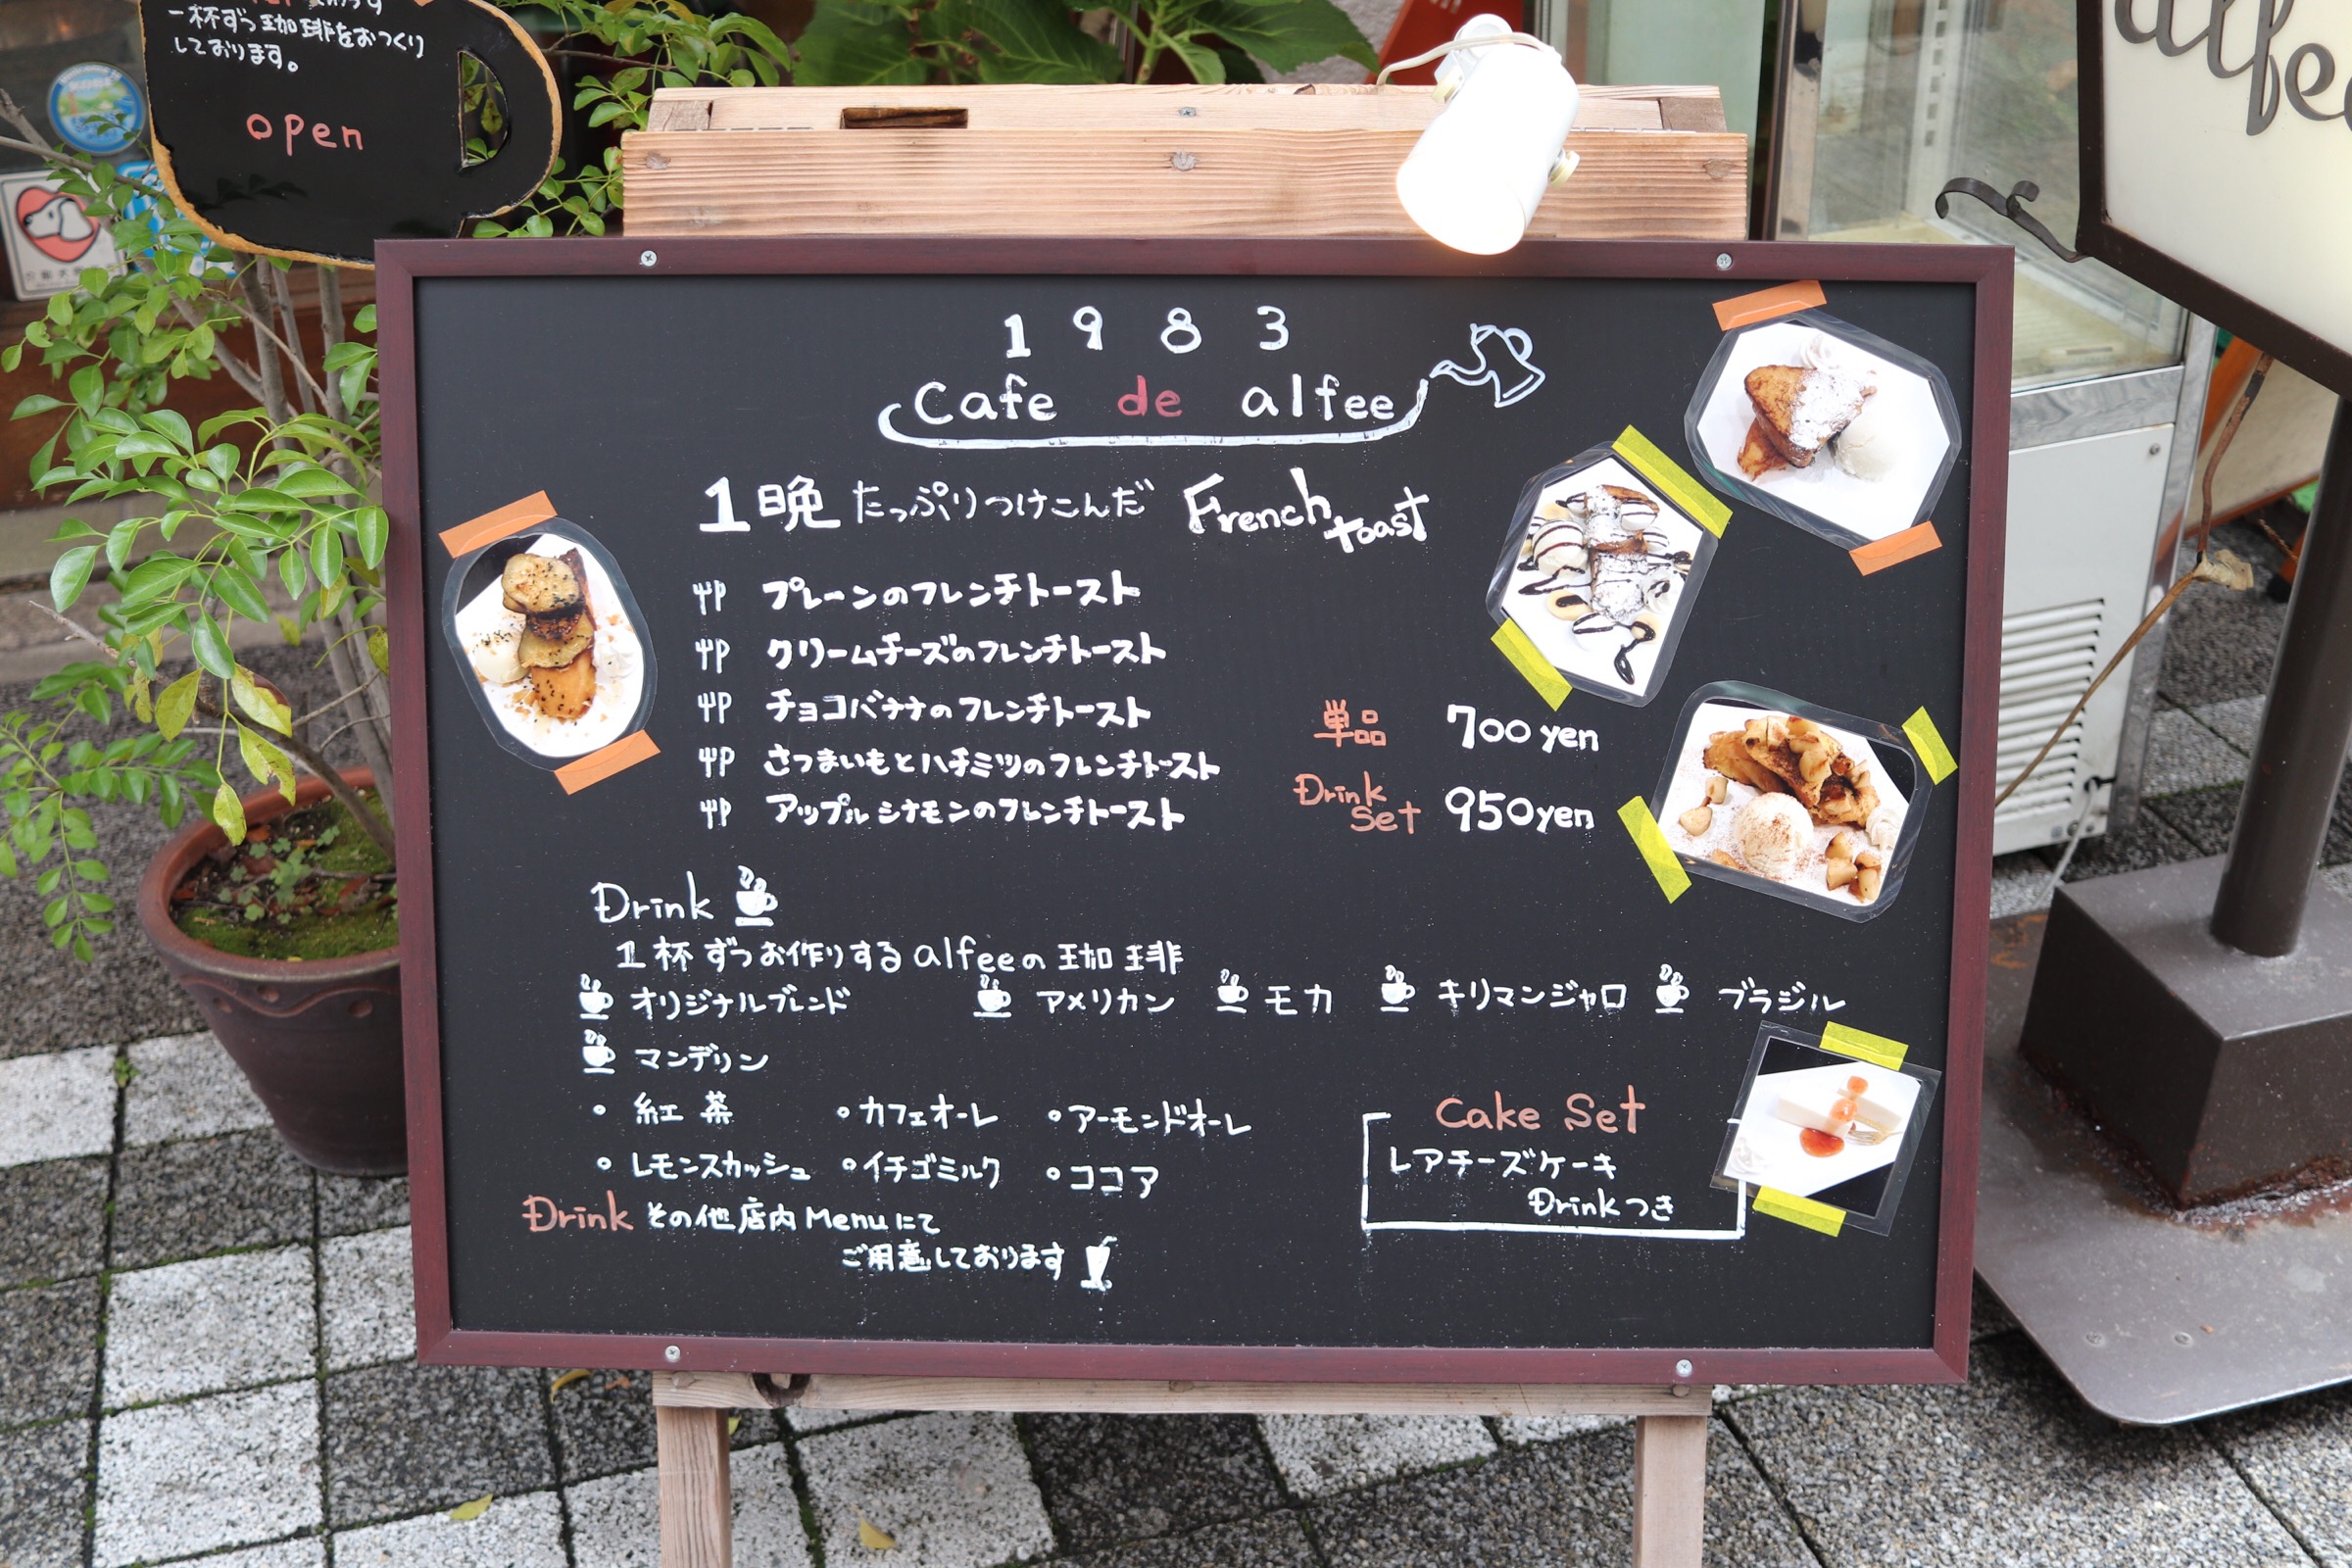 一杯ずつ珈琲をおつくり
しております。
open
1983
Cafe de alfee
1晩たっぷりつけこんだ French toast
プレーンのフレンチトースト
クリームチーズのフレンチトースト
チョコバナナのフレンチトースト
さつまいもとハチミツのフレンチトースト
アップルシナモンのフレンチトースト
単品 700yen
Drink Set 950yen
Drink
1杯ずつお作りするalfeeの珈琲
オリジナルブレンド アメリカン モカ キリマンジャロ ブラジル
マンデリン
・紅茶 ・カフェオーレ ・アーモンドオーレ
・レモンスカッシュ ・イチゴミルク ・ココア
Drink その他店内Menuにて
ご用意しております
Cake Set
レアチーズケーキ
Drinkつき